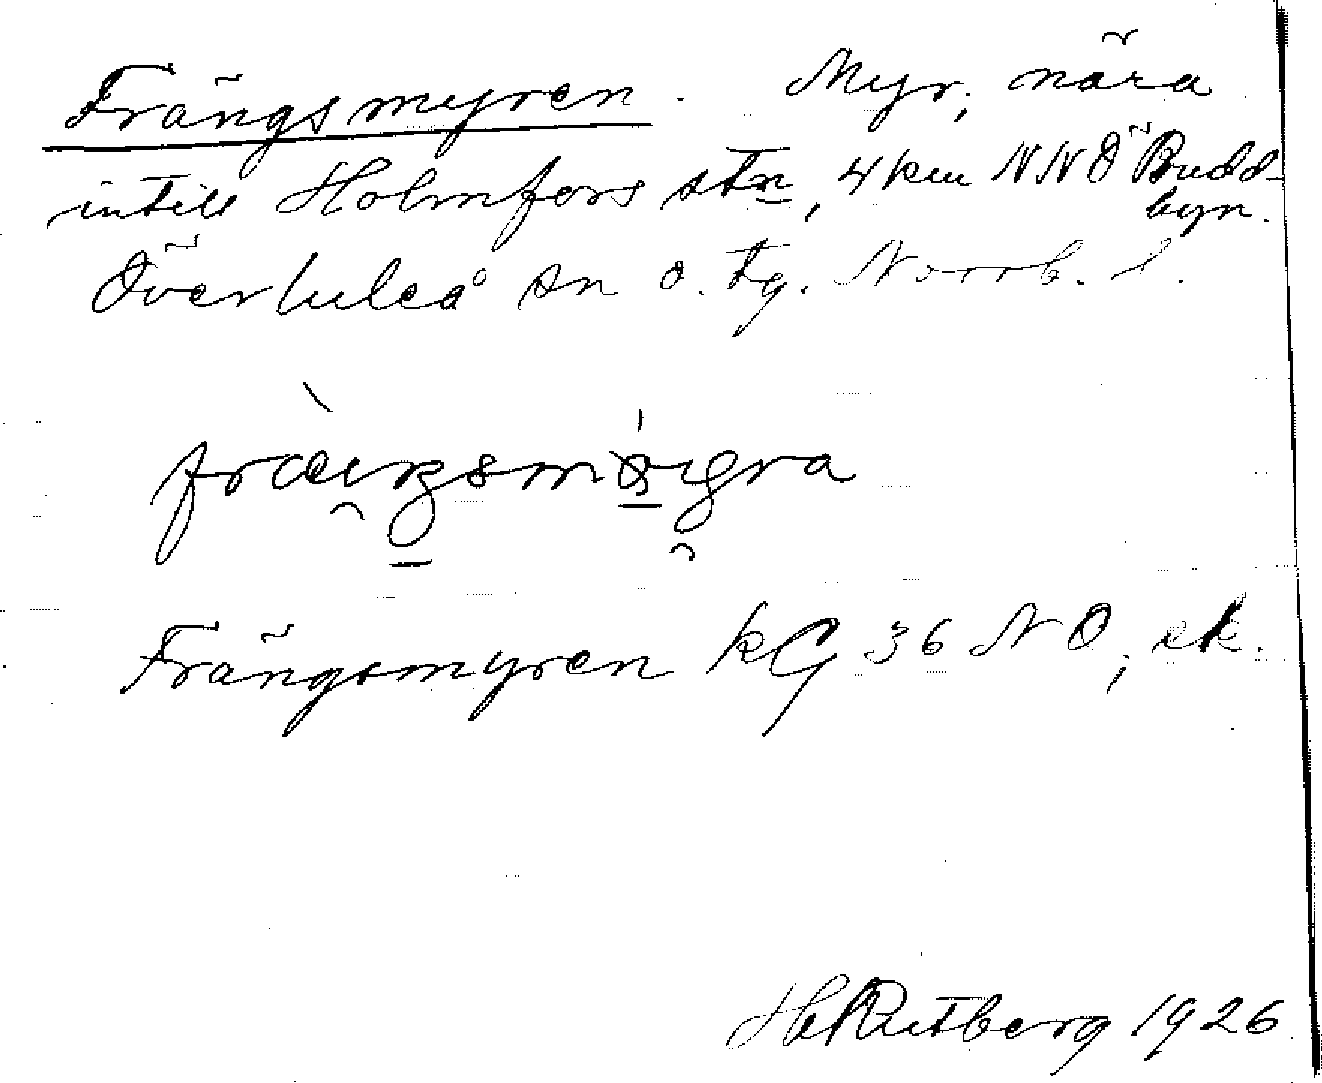 Frängsmyren. Myr, nära
intill Holmfors stn, 4 km NNÖ Budd-
byn.
Överluleå sn o. tg. Norrb. l.
Frängsmyren kG 36 NO, ek.
Hj Rutberg 1926